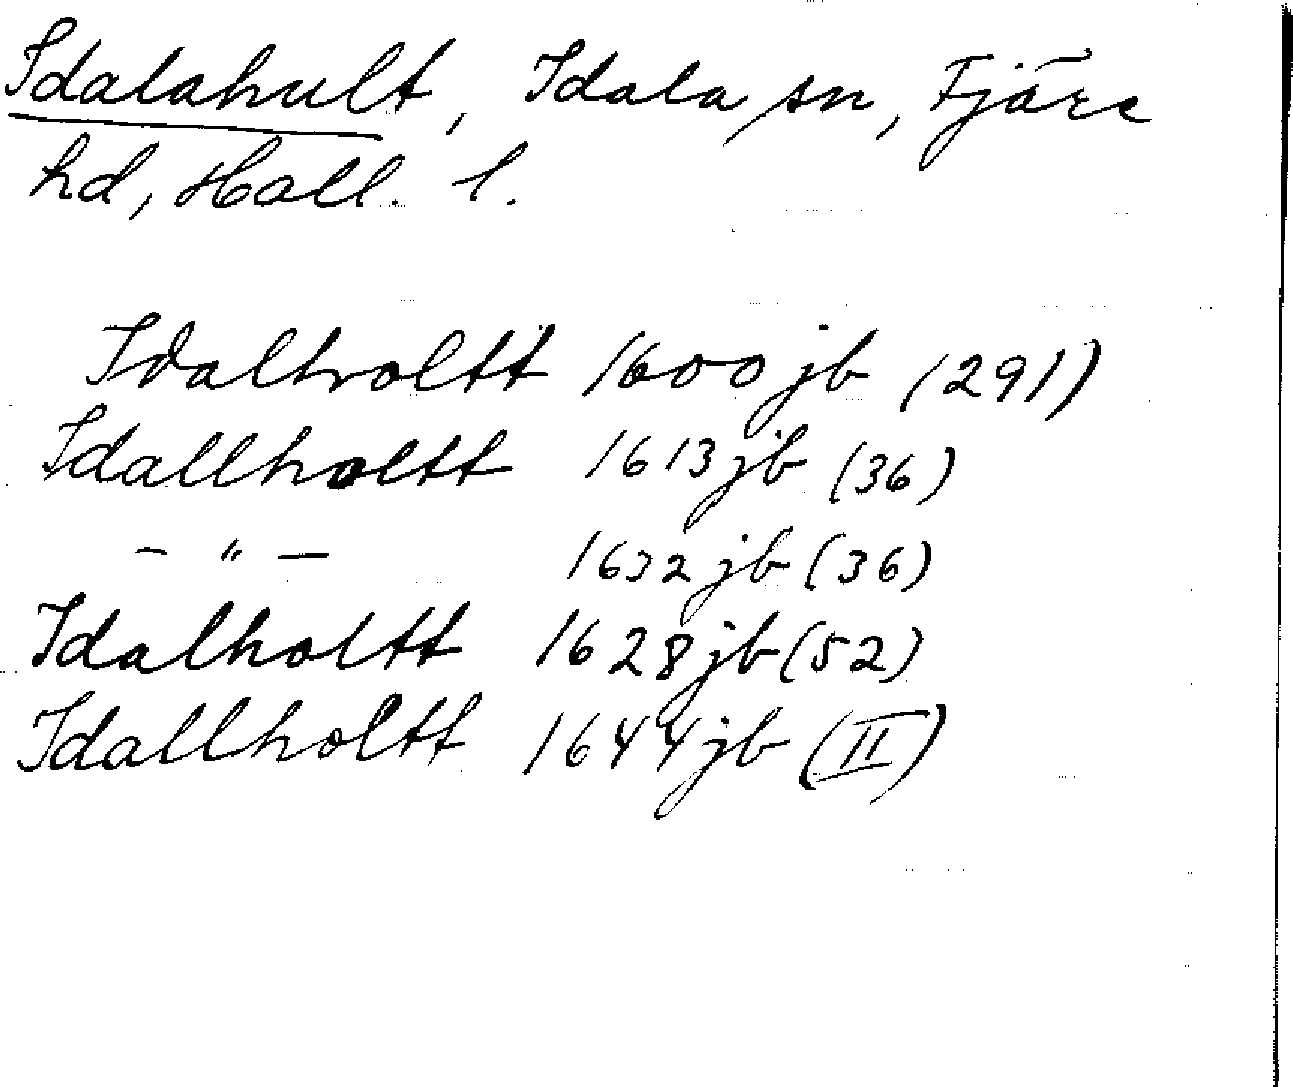 Idalahult, Idala sn, Fjäre
hd, Hall. l.
Idalholtt 1600 jb (291)
Idallholtt 1613 jb (36)
— " — 1632 jb (36)
Idalholtt 1628 jb (52)
Idallholtt 1644 jb (II)